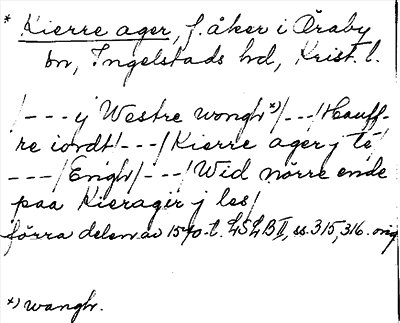 * Kierre ager, f. åker i Öraby
bn, Ingelstads hd, Krist. l.
/---j Westre wongh*)/---/Hauff-
re iordt/---/Kierre ager j te/
---/Engh/---/Wid nörre ende
paa Kieragir j les/
förra delen av 1570-t. LSLB II, ss. 315, 316. orig
*) wangh.